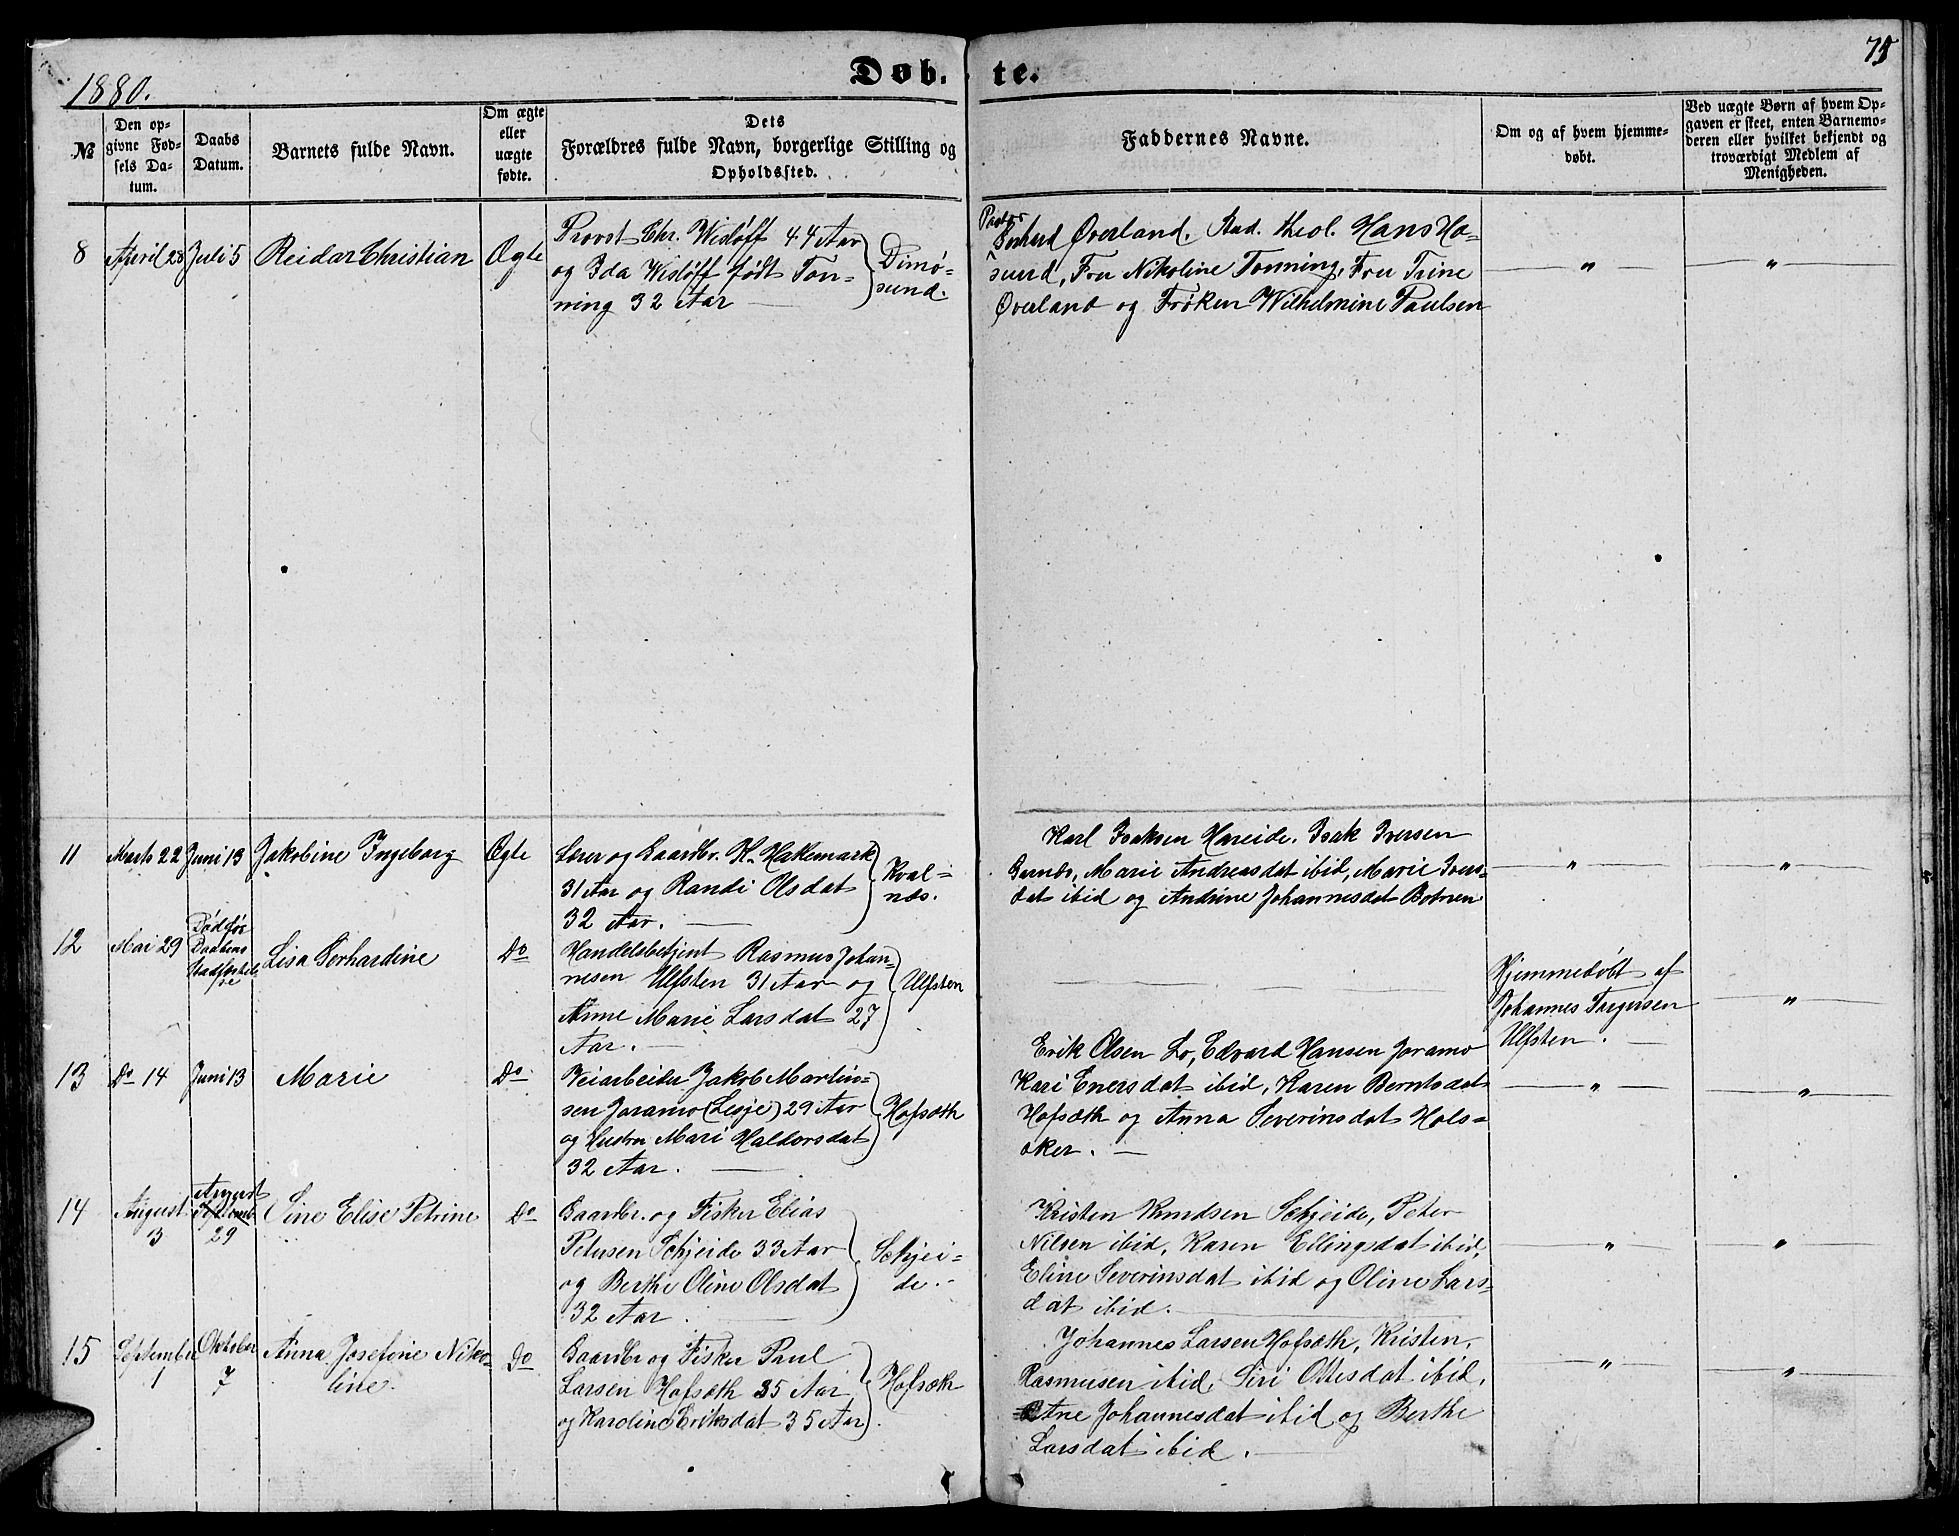 1880.
Døb-te.
75
№
Den opgivne Fødsels Datum.
Daabs Datum.
Barnets fulde Navn.
Om ægte eller uægte fødte.
Dets Forældres fulde Navn, borgerlige Stilling og Opholdssted.
Faddernes Navne.
Om og af hvem hjemmedøbt.
Ved uægte Børn af hvem Opgaven er skeet, enten Barnemoderen eller hvilket bekjendt og troværdigt Medlem af Menigheden.
8 April 28 Juli 5 Reidar Christian Ægte
Provst Chr. Wisløff 44 Aar
og Ida Wisløff født Ton-
ning 32 Aar
Dimø-
sund.
Pastor
Gerhard Øverland, Stud. theol. Hans Ha-
sund, Fru Nikoline Tonning, Fru Trine
Øverland og Frøken Wilhelmine Paulsen
" "
11 Marts 22 Juni 13 Jakobine Ingeborg Ægte
Lærer og Gaardbr. K. Hakemark
31 Aar og Randi Olsdat
32 Aar.
Kval-
næs.
Karl Isaksen Hareide, Isak Iversen
Marie Andreasdat ibid, Marie Ivers-
dat ibid og Andrine Johannesdat Botnen
" "
12 Mai 29
Død før
Daabens
Stadfæstel-
se
Lisa Gerhardine Do
Handelsbetjent Rasmus Johan-
nesen Ulfsten 31 Aar og
Anne Marie Larsdat 27
Aar.
Ulfsten
Hjemmedøbt af
Johannes Torgersen
Ulfsten.
"
13 Do 14 Juni 13 Marie Do
Veiarbeider Jakob Martin-
sen Joramo (Lesje) 29 Aar
og Hustru Mari Haldorsdat
32 Aar.
Hofsæth
Erik Olsen Lo, Edvard Hansen Joramo
Kari Enersdat ibid, Karen Berntsdat
Hofsæth og Anna Severinsdat Hols-
æker.
" "
14 August 3
August
Septemb.
29
Sine Elise Petrine Do
Gaardbr. og Fisker Elias
Petersen Schjeide 33 Aar
og Berthe Oline Olsdat
32 Aar.
Schjei-
de.
Kristen Knudsen Schjeide, Peter
Nilsen ibid, Karen Ellingsdat ibid,
Eline Severinsdat ibid og Oline Lars-
dat ibid.
" "
15 September 1 Oktober 7 Anna Josefine Niko-
line. Do
Gaardbr og Fisker Paul
Larsen Hofsæth 35 Aar
og Karoline Eriksdat 35 Aar
Hofsæth
Johannes Larsen Hofsæth, Kristen
Rasmusen ibid, Siri Ottesdat ibid,
Ane Johannesdat ibid og Berthe
Larsdat ibid.
" "